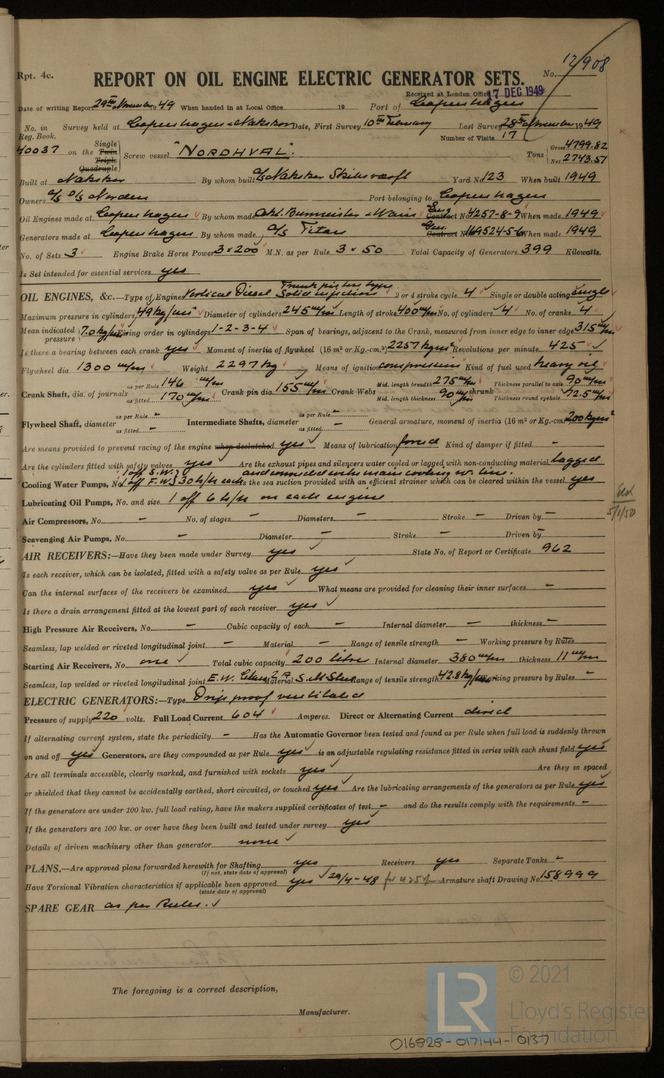 12/908
Rpt. 4c. REPORT ON OIL ENGINE ELECTRIC GENERATOR SETS. No.
Received at London Office 17 DEC 1949
Date of writing Report 29th November 1949 When handed in at Local Office 19 Port of Copenhagen
No. in Reg. Book. Survey held at Copenhagen & Nakskov Date, First Survey 10th February Last Survey 28th November 1949
Number of Visits 17
40037 on the Single Twin Triple Quadruple Screw vessel "NORDHVAL". Tons Gross 4799.82 Net 2743.57
Built at Nakskov By whom built A/S Nakskov Skibsværft Yard No. 123 When built 1949
Owners A/S D/S Norden Port belonging to Copenhagen
Oil Engines made at Copenhagen By whom made Akt. Burmeister & Wain Eng. Contract No. 4257-8-9 When made 1949
Generators made at Copenhagen By whom made A/S Titan Gen. Contract No. When made 1949
No. of Sets 3 Engine Brake Horse Power 3 x 200 M.N. as per Rule 3 x 50 Total Capacity of Generators 399 Kilowatts.
Is Set intended for essential services yes
OIL ENGINES, &c.—Type of Engines Vertical Diesel Trunk piston type Solid Injection 2 or 4 stroke cycle 4 Single or double acting single
Maximum pressure in cylinders 49 kg/cm² Diameter of cylinders 245 m/m Length of stroke 400 m/m No. of cylinders 4 No. of cranks 4
Mean indicated pressure 7.0 kg/cm² Firing order in cylinders 1-2-3-4 Span of bearings, adjacent to the Crank, measured from inner edge to inner edge 315 m/m
Is there a bearing between each crank yes Moment of inertia of flywheel (16 m² or Kg.-cm.²) 2257 kgm² Revolutions per minute 425
Flywheel dia. 1300 m/m Weight 2297 kg Means of ignition compression Kind of fuel used heavy oil
Crank Shaft, dia. of journals as per Rule 146 m/m as fitted 170 m/m Crank pin dia. 155 m/m Crank Webs Mid. length breadth 275 m/m Mid. length thickness 90 m/m shrunk Thickness parallel to axis 90 m/m Thickness round eyehole 72.5 m/m
Flywheel Shaft, diameter as per Rule - as fitted - Intermediate Shafts, diameter as per Rule - as fitted - General armature, moment of inertia (16 m² or Kg.-cm.²) 200 kgm²
Are means provided to prevent racing of the engine when declutched yes Means of lubrication forced Kind of damper if fitted -
Are the cylinders fitted with safety valves yes Are the exhaust pipes and silencers water cooled or lagged with non-conducting material lagged
Cooling Water Pumps, No. 1 off S.W. 1 off F.W. 30 t/h each and connected with main cooling w. line. Is the sea suction provided with an efficient strainer which can be cleared within the vessel yes
Lubricating Oil Pumps, No. and size 1 off 6 t/h on each engine
5/1/50
Air Compressors, No. - No. of stages - Diameters - Stroke - Driven by -
Scavenging Air Pumps, No. - Diameter - Stroke - Driven by -
AIR RECEIVERS:—Have they been made under Survey yes State No. of Report or Certificate 962
Is each receiver, which can be isolated, fitted with a safety valve as per Rule yes
Can the internal surfaces of the receivers be examined yes What means are provided for cleaning their inner surfaces -
Is there a drain arrangement fitted at the lowest part of each receiver yes
High Pressure Air Receivers, No. - Cubic capacity of each - Internal diameter - thickness -
Seamless, lap welded or riveted longitudinal joint - Material - Range of tensile strength - Working pressure by Rules
Starting Air Receivers, No. one Total cubic capacity 200 litre Internal diameter 380 m/m thickness 11 m/m
Seamless, lap welded or riveted longitudinal joint E.W. Class Material S.M. Steel Range of tensile strength 42.8 kg/mm² Working pressure by Rules -
ELECTRIC GENERATORS:—Type Drip proof ventilated
Pressure of supply 220 volts. Full Load Current 604 Amperes. Direct or Alternating Current direct
If alternating current system, state the periodicity - Has the Automatic Governor been tested and found as per Rule when full load is suddenly thrown
on and off yes Generators, are they compounded as per Rule yes is an adjustable regulating resistance fitted in series with each shunt field yes
Are all terminals accessible, clearly marked, and furnished with sockets yes Are they so spaced
or shielded that they cannot be accidentally earthed, short circuited, or touched yes Are the lubricating arrangements of the generators as per Rule yes
If the generators are under 100 kw. full load rating, have the makers supplied certificates of test - and do the results comply with the requirements -
If the generators are 100 kw. or over have they been built and tested under survey yes
Details of driven machinery other than generator none
PLANS.—Are approved plans forwarded herewith for Shafting yes Receivers yes Separate Tanks -
(If not, state date of approval)
Have Torsional Vibration characteristics if applicable been approved yes 29/4-48 for 425 Armature shaft Drawing No. 158999
(state date of approval)
SPARE GEAR as per Rules.
The foregoing is a correct description,
Manufacturer.
LR © 2021 Lloyd's Register Foundation
016828-017144-0137